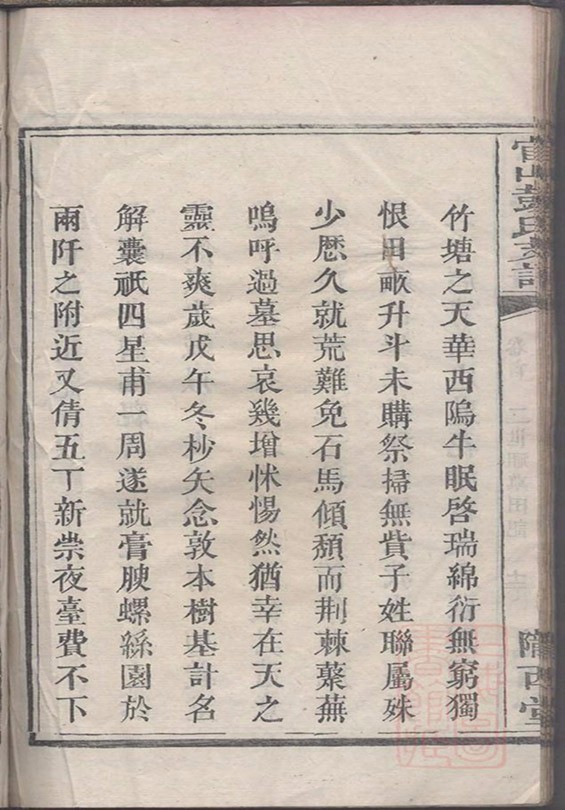 竹塘之天華西鄔牛眠啓瑞綿衍無窮獨
恨田畝升斗未購祭掃無貲子姓聯屬姝
少歷久就荒難免石馬傾頽而荆棘蘂蕪
嗚呼過墓思哀幾增怵惕然猶幸在天之
靈不爽歲戊午冬杪矢念敦本樹基計名
解囊祇四星甫一周遂就膏腴螺絲園於
兩阡之附近又倩五丁新崇夜臺費不下
彭氏支譜
隴西堂